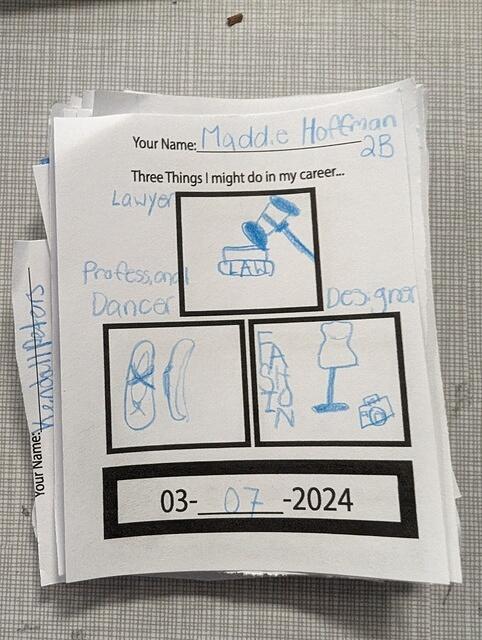 Your Name: Maddie Hoffman
2B
Three Things I might do in my career...
Lawyer
LAW
Professional
Dancer
Designer
FASHION
03- 07 -2024
Your Name: Kendall Peters